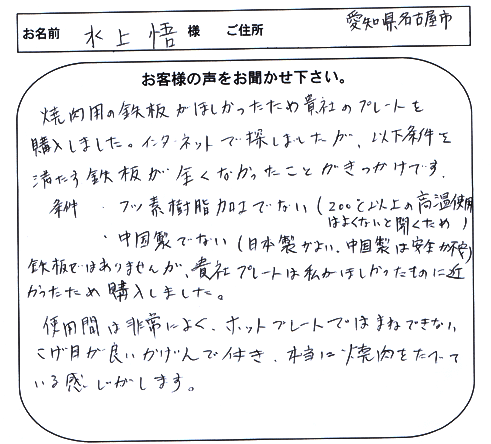 お名前 水上 悟 様 ご住所 愛知県名古屋市
お客様の声をお聞かせ下さい。
焼肉用の鉄板がほしかったため貴社のプレートを
購入しました。インターネットで探しましたが、以下条件を
満たす鉄板が全くなかったことがきっかけです。
条件 ・フッ素樹脂加工でない(200℃以上の高温使用
はよくないと聞くため)
・中国製でない(日本製がよい、中国製は安全か不安)
鉄板ではありませんが、貴社プレートは私がほしかったものに近
かったため購入しました。
使用間は非常によく、ホットプレートではまねできない
こげ目が良いかげんで付き、本当に焼肉をたべて
いる感じがします。